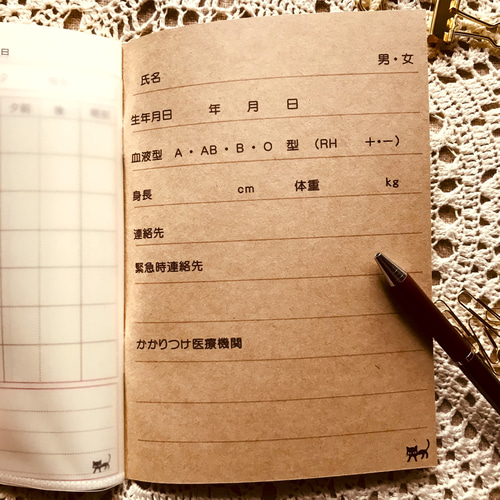 日
氏名 男・女
生年月日 年 月 日
血液型 A・AB・B・O 型 (RH +・ー)
身長 cm 体重 kg
連絡先
緊急時連絡先
かかりつけ医療機関